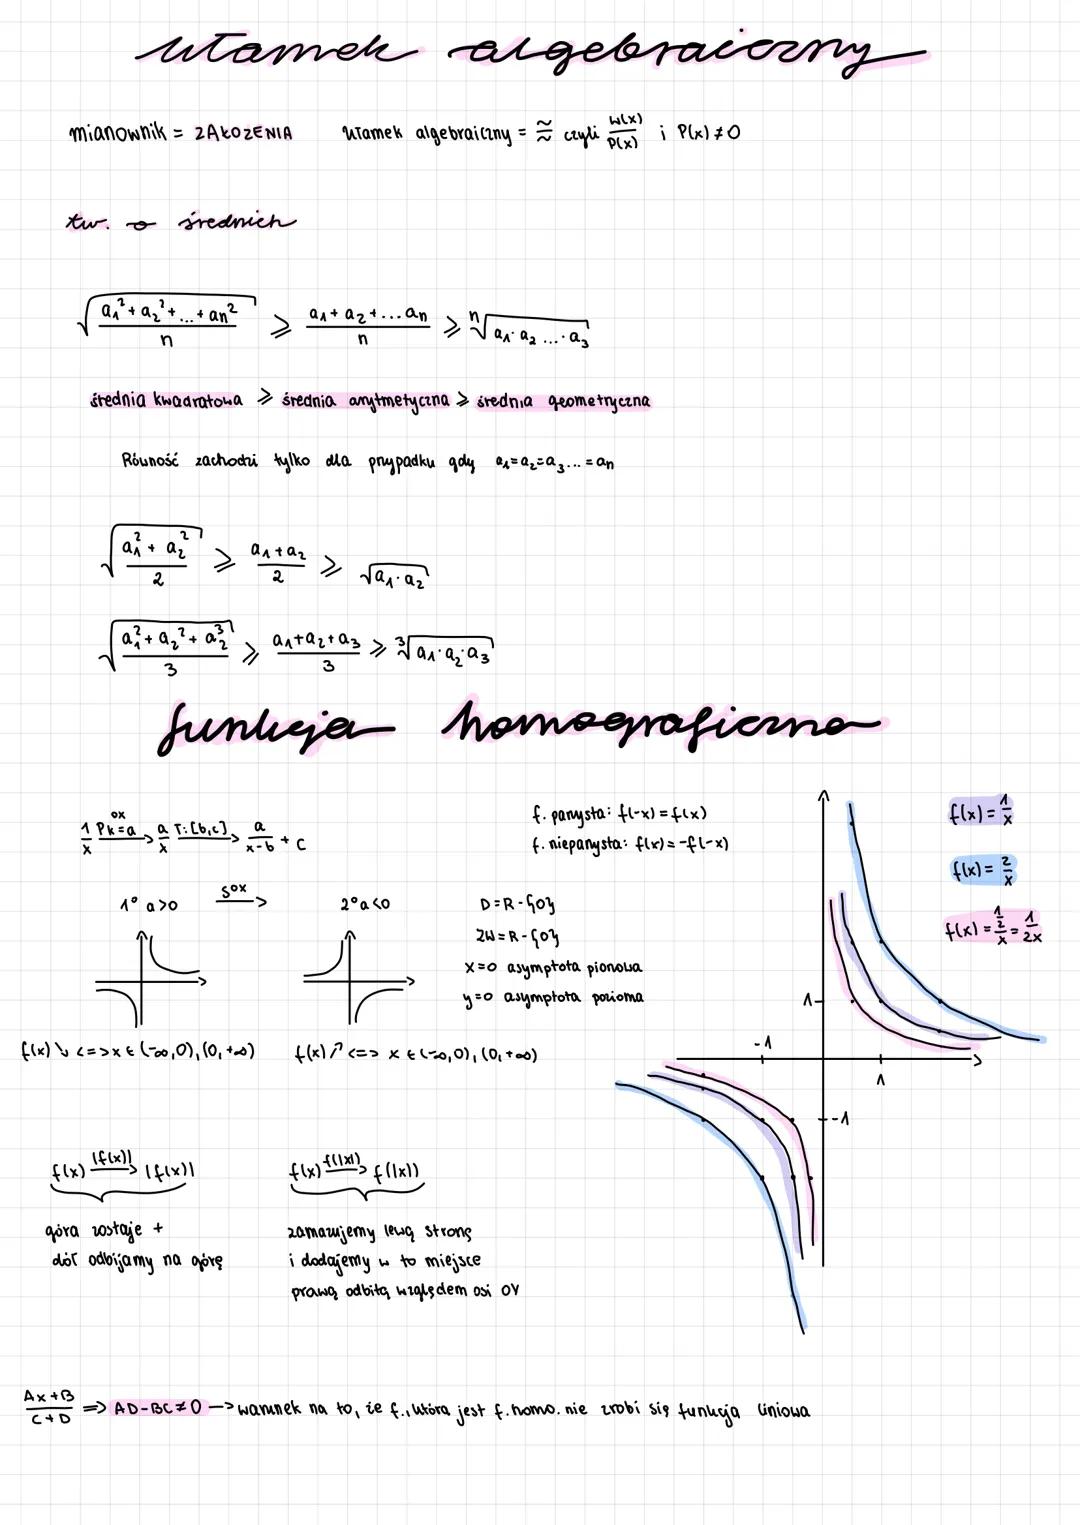 ułamek algebraiczny
mianownik = ZAŁOŻENIA ułamek algebraiczny = ≈/≈ czyli W(x)/P(x) i P(x) ≠ 0
tw. o średnich
√((a₁² + a₂² + ... + an²)/n) ⩾ (a₁ + a₂ + ... an)/n ⩾ ⁿ√(a₁· a₂ ...· a₃)
średnia kwadratowa ⩾ średnia arytmetyczna ⩾ średnia geometryczna
Równość zachodzi tylko dla przypadku gdy a₁=a₂=a₃... = an
√((a₁² + a₂²)/2) ⩾ (a₁ + a₂)/2 ⩾ √(a₁ · a₂)
√((a₁² + a₂² + a₂³)/3) ⩾ (a₁+a₂+a₃)/3 ⩾ ³√(a₁·a₂·a₃)
funkcja homograficzna
1/x Pk=a ox → a/x T:[b,c] → a/(x-b) + c
1° a>0 Sox → 2° a<0
f(x) ↘ <=> x ∈ (-∞,0), (0,+∞) f(x) ↗ <=> x ∈ (-∞,0), (0,+∞)
f. parzysta: f(-x) = f(x)
f. nieparzysta: f(x) = -f(-x)
D = R - {0}
ZW = R - {0}
x=0 asymptota pionowa
y=0 asymptota pozioma
f(x) = 1/x
f(x) = 2/x
f(x) = (1/2)/x = 1/2x
1
-1
1
-1
f(x) |f(x)| → |f(x)| f(x) f(|x|) → f(|x|)
góra zostaje +
dół odbijamy na górę
zamazujemy lewą stronę
i dodajemy w to miejsce
prawą odbitą względem osi OY
(Ax+B)/(C+D) => AD-BC≠0 -> warunek na to, że f., która jest f. homo. nie zrobi się funkcja liniowa